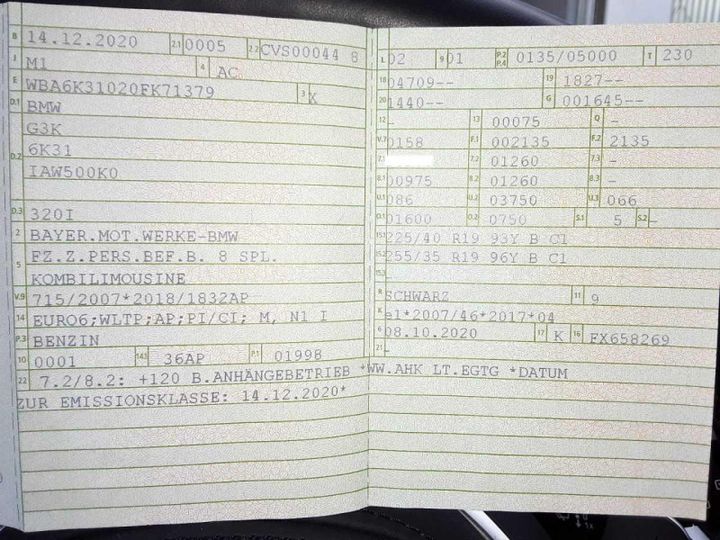 B 14.12.2020 2.1 0005 2.2 CVS00044 8
J M1 4 AC
E WBA6K31020FK71379 3 X
D.1 BMW
G3K
D.2 6K31
IAW500K0
D.3 320I
2 BAYER.MOT.WERKE-BMW
5 FZ.Z.PERS.BEF.B. 8 SPL.
KOMBILIMOUSINE
V.9 715/2007*2018/1832AP
14 EURO6;WLTP;AP;PI/CI; M, N1 I
P.3 BENZIN
10 0001 14.1 36AP P.1 01998
22 7.2/8.2: +120 B.ANHÄNGEBETRIEB *WW.AHK LT.EGTG *DATUM
ZUR EMISSIONSKLASSE: 14.12.2020*
L 02 9 01 P.2 P.4 0135/05000 T 230
18 04709-- 19 1827--
20 1440-- G 001645--
12 - 13 00075 Q -
V.7 0158 F.1 002135 F.2 2135
7.1 7.2 01260 7.3 -
8.1 00975 8.2 01260 8.3 -
U.1 086 U.2 03750 U.3 066
O.1 01600 O.2 0750 S.1 5 S.2 -
15.1 225/40 R19 93Y B C1
15.2 255/35 R19 96Y B C1
15.3
R SCHWARZ 11 9
K e1*2007/46*2017*04
6 08.10.2020 17 K 16 FX658269
21 -